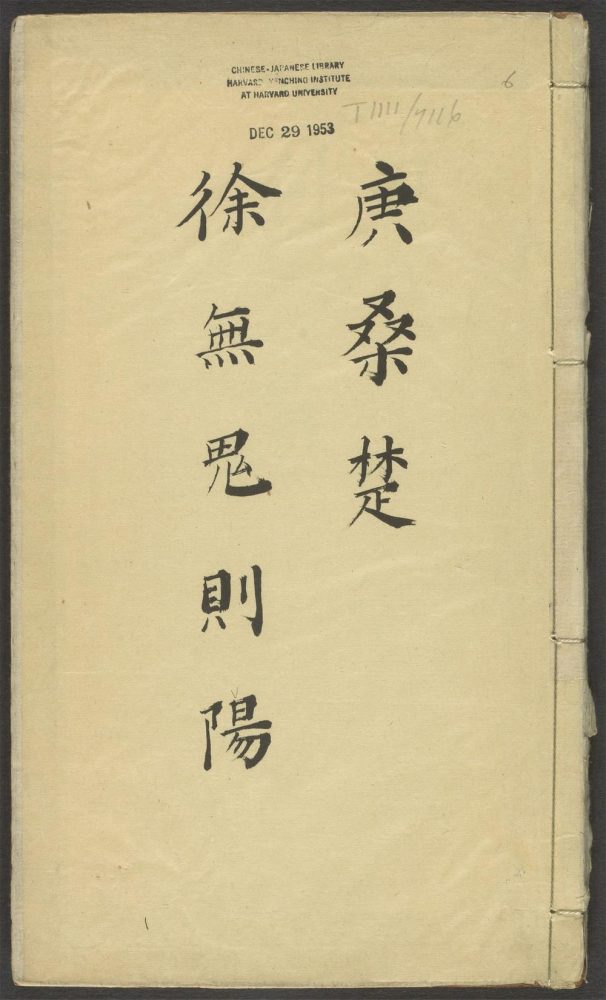 CHINESE-JAPANESE LIBRARY
HARVARD YENCHING INSTITUTE
AT HARVARD UNIVERSITY
DEC 29 1953
T 1111/7116
6
庚桑楚
徐無鬼則陽